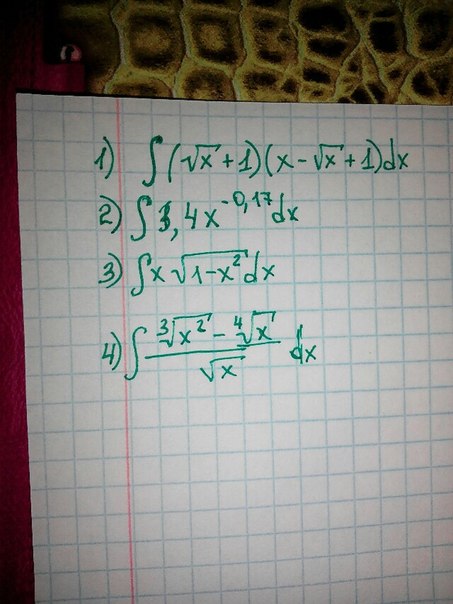 1) ∫(√x + 1)(x - √x + 1)dx
2) ∫3,4x^{-0,17}dx
3) ∫x√(1-x²)dx
4) ∫(∛(x²) - ∜x)/√x dx